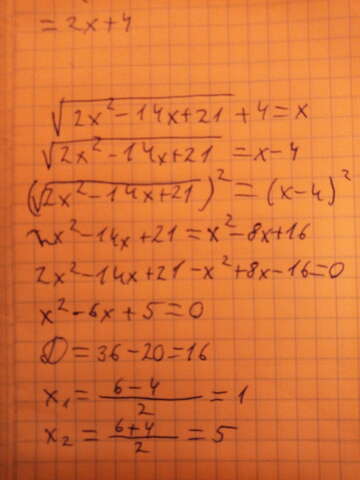 = 2x+4
√(2x²-14x+21) + 4 = x
√(2x²-14x+21) = x-4
(√(2x²-14x+21))² = (x-4)²
2x²-14x+21 = x²-8x+16
2x²-14x+21-x²+8x-16=0
x²-6x+5=0
D=36-20=16
x₁ = (6-4)/2 = 1
x₂ = (6+4)/2 = 5